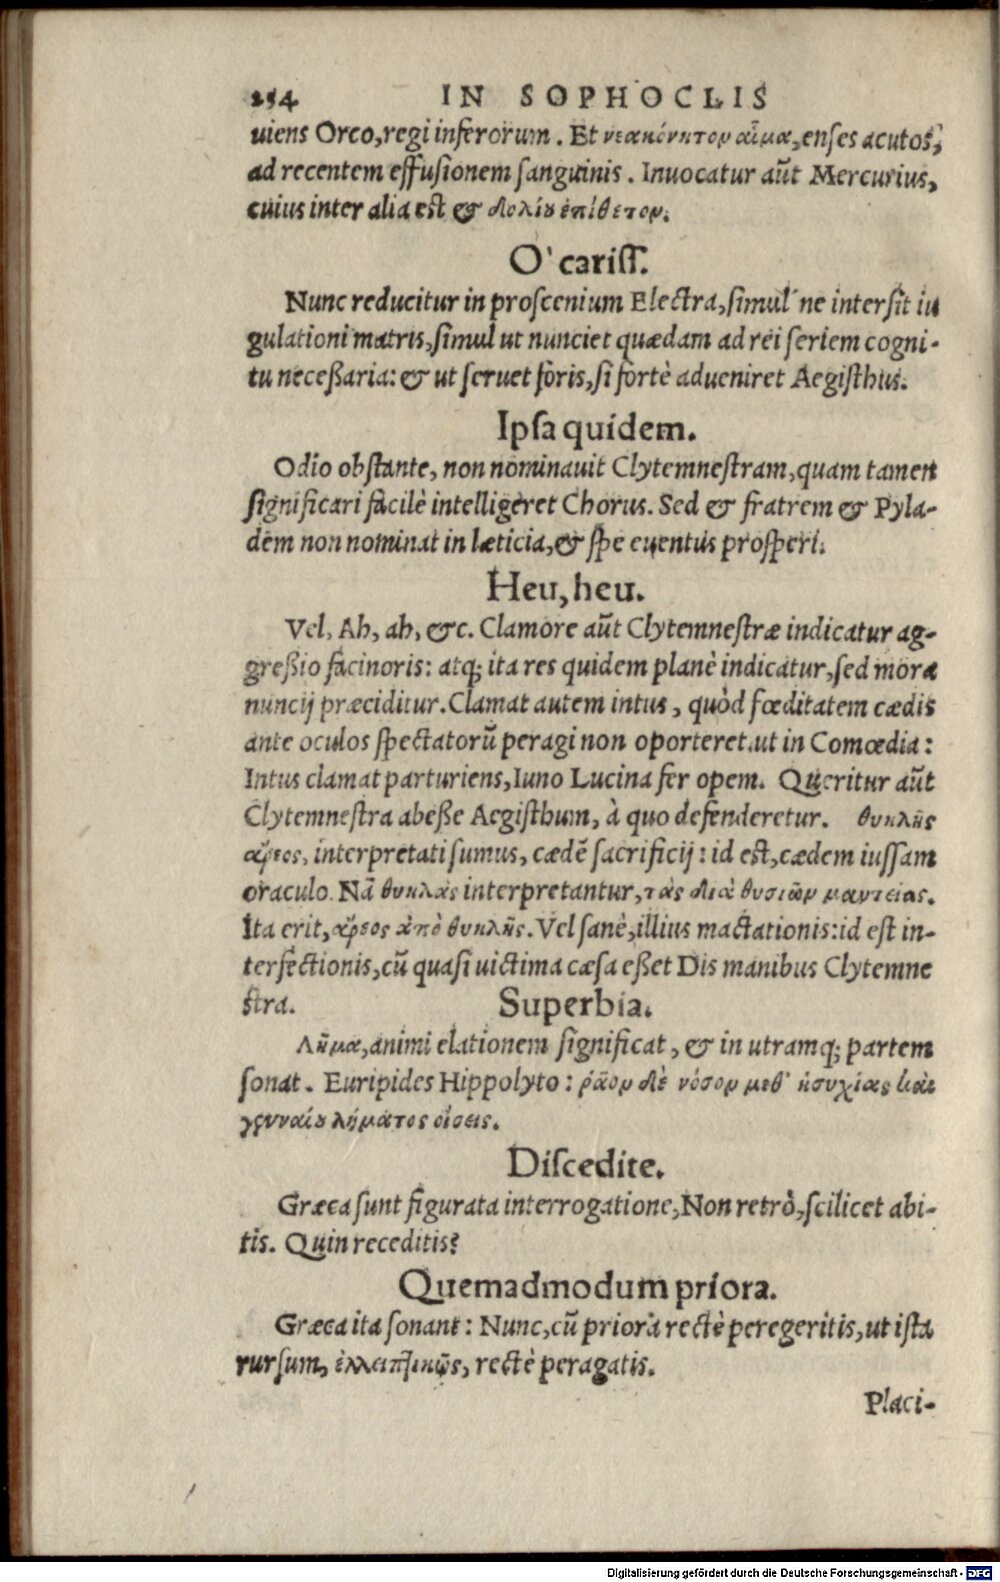 254 IN SOPHOCLIS
uiens Orco, regi inferorum. Et νεακόνητον αἷμα, enses acutos,
ad recentem effusionem sanguinis. Inuocatur aũt Mercurius,
cuius inter alia est & δολίȣ ἐπίθετον.
O' cariss.
Nunc reducitur in proscenium Electra, simul ne intersit iu
gulationi matris, simul ut nunciet quædam ad rei seriem cogni-
tu necessaria: & ut seruet foris, si fortè adueniret Aegisthus.
Ipsa quidem.
Odio obstante, non nominauit Clytemnestram, quam tamen
significari facilè intelligeret Chorus. Sed & fratrem & Pyla-
dem non nominat in læticia, & spe euentus prosperi.
Heu, heu.
Vel, Ah, ah, &c. Clamore aũt Clytemnestræ indicatur ag-
gressio facinoris: atq; ita res quidem planè indicatur, sed mora
nuncij præciditur. Clamat autem intus, quòd fœditatem cædis
ante oculos spectatorũ peragi non oporteret, ut in Comœdia:
Intus clamat parturiens, Iuno Lucina fer opem. Queritur aũt
Clytemnestra abesse Aegisthum, à quo defenderetur. θυηλῆς
ἄρεος, interpretati sumus, cædẽ sacrificij: id est, cædem iussam
oraculo. Nã θυηλὰς interpretantur, τὰς διὰ θυσιῶν μαντείας.
Ita erit, ἄρεος ἀπὸ θυηλῆς. Vel sanè, illius mactationis: id est in-
terfectionis, cũ quasi uictima cæsa esset Dis manibus Clytemne
stra. Superbia.
Λῆμα, animi elationem significat, & in utramq; partem
sonat. Euripides Hippolyto: ῥᾷον δὲ νόσον μεθ' ἡσυχίας καὶ
γενναίȣ λήματος οἴσεις.
Discedite.
Græca sunt figurata interrogatione, Non retrò, scilicet abi-
tis. Quin receditis?
Quemadmodum priora.
Græca ita sonant: Nunc, cũ priora rectè peregeritis, ut ista
rursum, ἐλλειπτικῶς, rectè peragatis.
Placi-
Digitalisierung gefördert durch die Deutsche Forschungsgemeinschaft - DFG